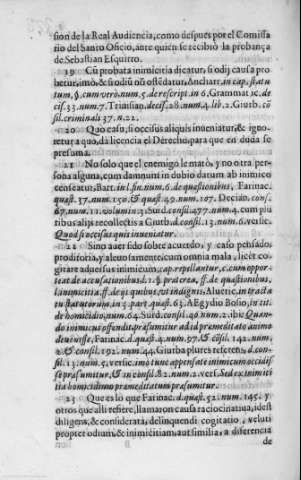 sion de la Real Audiencia, como despues por el Comissa
rio del Santo Oficio, ante quien se recibiò la probança
de Sebastian Esquitro.
19 Cũ probata inimicitia dicatur, si odij causa pro
betur, imò, & si odiũ nõ ostẽdatur, Anchar. in cap. statu
tum, §. cum verò, num. 5. de rescript. in 6. Grammat. ic. de
cis. 33. num. 7. Trinstan. decis. 28. num. 4. lib. 2. Giurb. cõ
sil. criminali 37. n. 22.
20 Quo casu, si occisus aliquis inueniatur, & igno-
retur a quo, dà licencia el Derecho para que en duda se
presuma.
21 No solo que el enemigo le matò, y no otra per-
sona alguna, cum damnum in dubio datum ab inimico
censeatur, Bart. in l. fin. num. 6. de quæstionibus, Farinac.
quæst. 37. num. 150. & quæst. 49. num. 107. Decian. cons.
67. num. 12. volumin. 3. Surd. consil. 477. num. 4. cum plu
ribus alijs recollectis a Giurb. d. consil. 13. num. 6. versic.
Quod si occisus quis inueniatur.
22 Sino auer sido sobre acuerdo, y caso pensado,
proditoria, y aleuosamente, cum omnia mala, licèt co-
gitare aduersus inimicum, cap. repellantur, c. cum oppor-
teat de accusationibus, l. 1. § præterea, ff. de quæstionibus,
l. inimicitiæ, ff. de ijs quibus, vt indignis, Aluitic. in tracta
tu statutorum, in 3. part. quæst. 63. Aegydio Bosio, in tit.
de homicidio, num. 64. Surd. consil. 40. num. 2. ibi: Quan-
do inimicus offendit præsumitur ad id præmeditato animo
deuenisse, Farinac. d. quæst. 4. num. 97. & cõsil. 142. num.
2. & consil. 192. num. 44. Giurba plures referens, d. con-
sil. 13. num. 5. versic. imò tunc appensatè inimicum occidis
se præsumitur, & in consil. 82. num. 2. vers. Sed ex inimici
tia homicidium præmeditatum præsumitur.
23 Que es lo que Farinac. d. quæst. 52. num. 145. y
otros que alli refiere, llamaron causa raciocinatiua, id est
diligens, & considerata, delinquendi cogitatio, veluti
propter odium, & inimicitiam aut similia, a diferencia
de